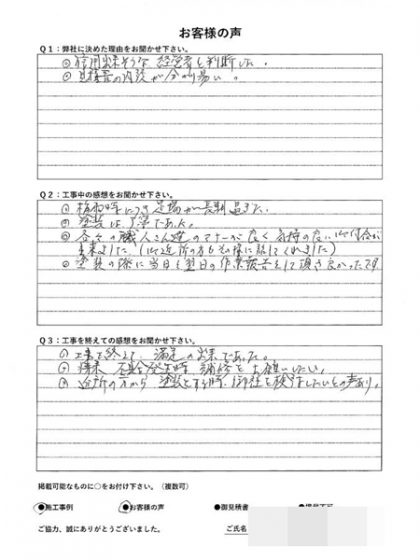 お客様の声
Q1：弊社に決めた理由をお聞かせ下さい。
① 信用出来そうな 経営者と判断した。
② 見積書の内訳が分り易い。
Q2：工事中の感想をお聞かせ下さい。
① 梅雨時につき 足場が長期
② 塗装は丁寧であった。
③ 各々の職人さん達のマナーが良く気持の良い
出来ました（ご近所の方も
④ 塗装の際に当日と翌日の作業報告をして頂き良かったです
Q3：工事を終えての感想をお聞かせ下さい。
① 工事を終えて、満足の出来であった。
② 将来 不具合発生時 補修をお願いしたい。
③ 近所の方から 塗装をする時、御社を検討したいとの声あり。
掲載可能なものに○をお付け下さい。（複数可）
●施工事例 ●お客様の声 ●御見積書
ご協力、誠にありがとうございました。 ご氏名